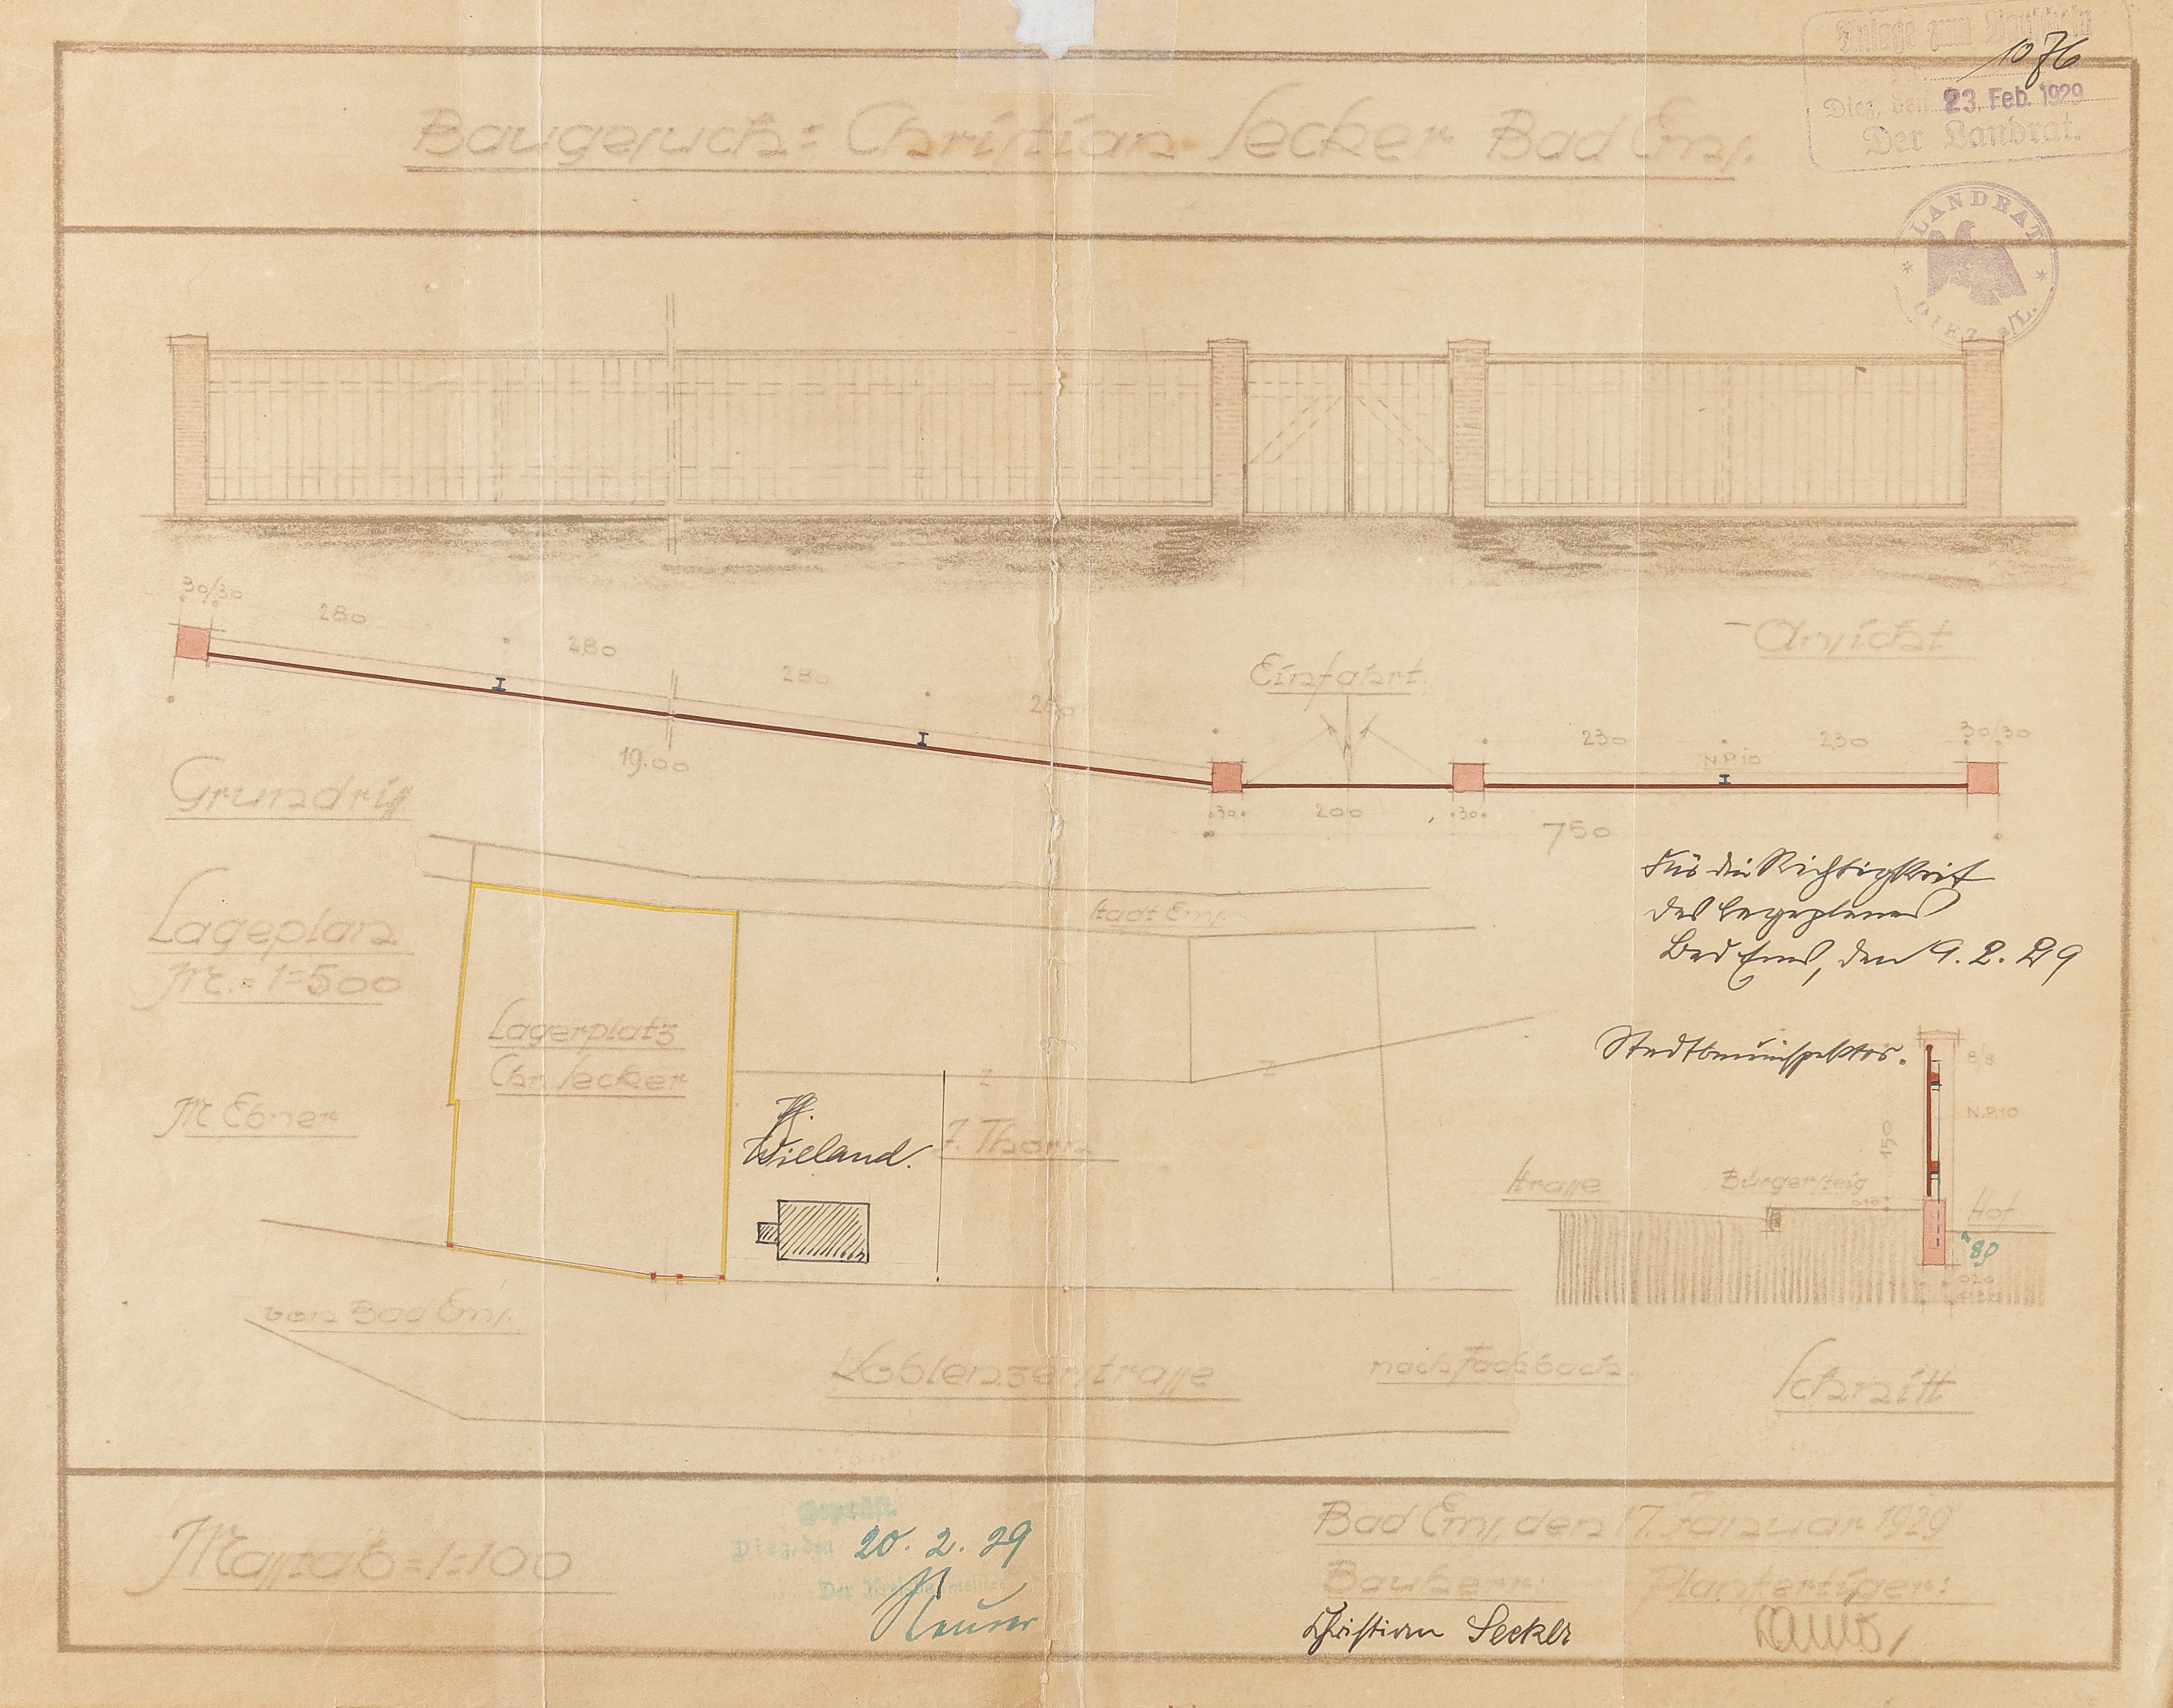 Anlage zum Bauschein
1076
Diez, den 23. Feb. 1929
Der Landrat.
Baugesuch = Christian Secker Bad Ems.
LANDRAT
DIEZ a/L.
Ansicht
30/30
280
280
280
Einfahrt
230
230
30/30
N.P.10
19.00
30
200
30
750
Grundriss
Lageplan
M. = 1=500
Stadt Ems
Für die Richtigkeit
des Lageplanes
Bad Ems, den 9. 2. 29
Stadtbauinspektor.
Lagerplatz
Chr. Secker
M Ebner
Wieland.
F. Thorn
Z
Z
8/8
N.P.10
150
Strasse
Bürgersteig
Hof
80
020
von Bad Ems.
Koblenzerstrasse
nach Fachbach.
Schnitt
Masstab = 1=100
Geprüft.
Diez, den 20. 2. 29
Bad Ems, den 17 Januar 1929
Bauherr:
Planfertiger:
Christian Secker